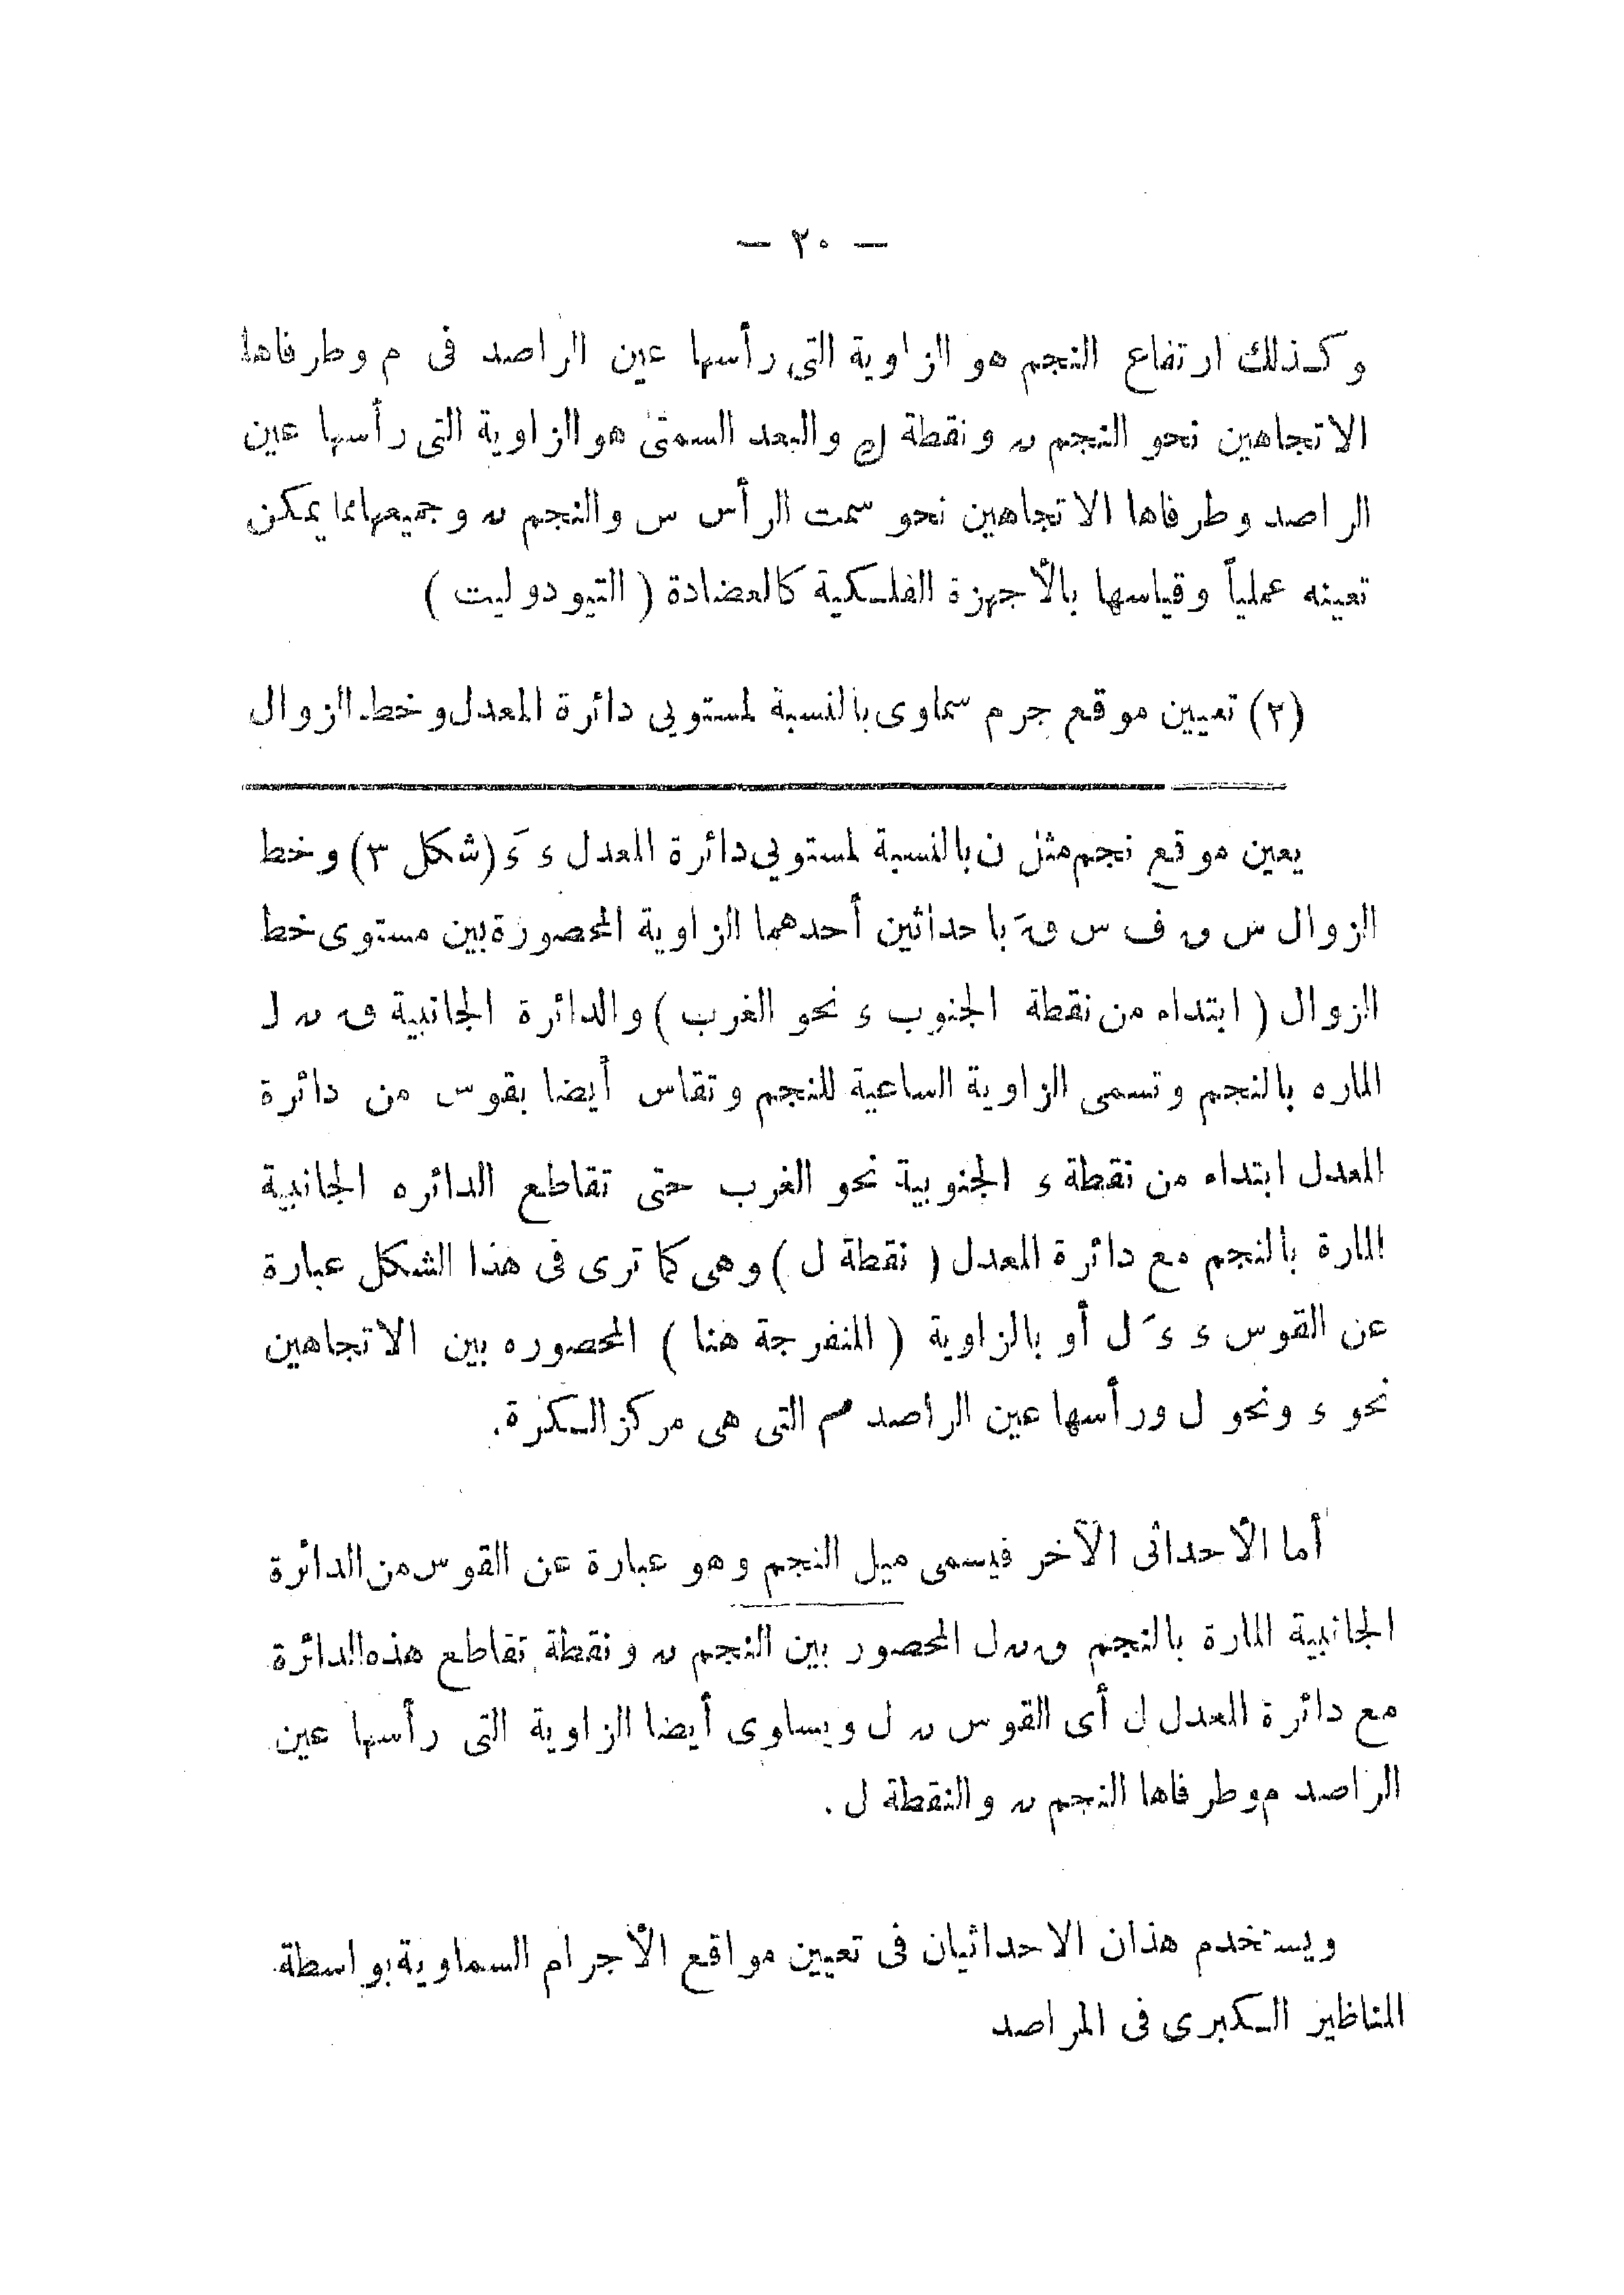 — ٢٠ —
وكذلك ارتفاع النجم هو الزاوية التى رأسها عين الراصد فى م وطرفاها
الاتجاهين نحو النجم ں ونقطة ك والبعد السمتى هو الزاوية التى رأسها عين
الراصد وطرفاها الاتجاهين نحو سمت الرأس س والنجم ں وجميعها مما يمكن
تعينه عملياً وقياسها بالأجهزة الفلكية كالعضادة ( التيودوليت )
(٢) تعيين موقع جرم سماوى بالنسبة لمستويى دائرة المعدل وخط الزوال
يعين موقع نجم مثل ن بالنسبة لمستويى دائرة المعدل ء ءَ (شكل ٣) وخط
الزوال س ق ف س قَ باحداثين أحدهما الزاوية المحصورة بين مستوى خط
الزوال ( ابتداء من نقطة الجنوب ء نحو الغرب ) والدائرة الجانبية ق ں ل
الماره بالنجم وتسمى الزاوية الساعية للنجم وتقاس أيضا بقوس من دائرة
المعدل ابتداء من نقطة ء الجنوبية نحو الغرب حتى تقاطع الدائره الجانبية
المارة بالنجم مع دائرة المعدل ( نقطة ل ) وهى كما ترى فى هذا الشكل عبارة
عن القوس ء ءَ ل أو بالزاوية ( المنفرجة هنا ) المحصوره بين الاتجاهين
نحو ء ونحو ل ورأسها عين الراصد م التى هى مركز الكرة.
أما الأحداثى الآخر فيسمى ميل النجم وهو عبارة عن القوس من الدائرة
الجانبية المارة بالنجم ق ں ل المحصور بين النجم ں ونقطة تقاطع هذه الدائرة
مع دائرة المعدل ل أى القوس ں ل ويساوى أيضا الزاوية التى رأسها عين
الراصد م وطرفاها النجم ں والنقطة ل .
ويستخدم هذان الاحداثيان فى تعيين مواقع الأجرام السماوية بواسطة
المناظير الكبرى فى المراصد